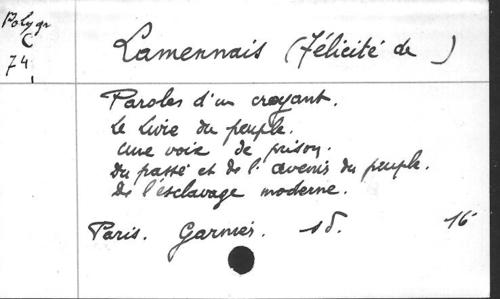 Polygr
C
74
Lamennais (Félicité de )
Paroles d'un croyant.
Le Livre du peuple.
Une voix de prison.
Du passé et de l'avenir du peuple.
De l'esclavage moderne.
Paris. Garnier. sd. 16